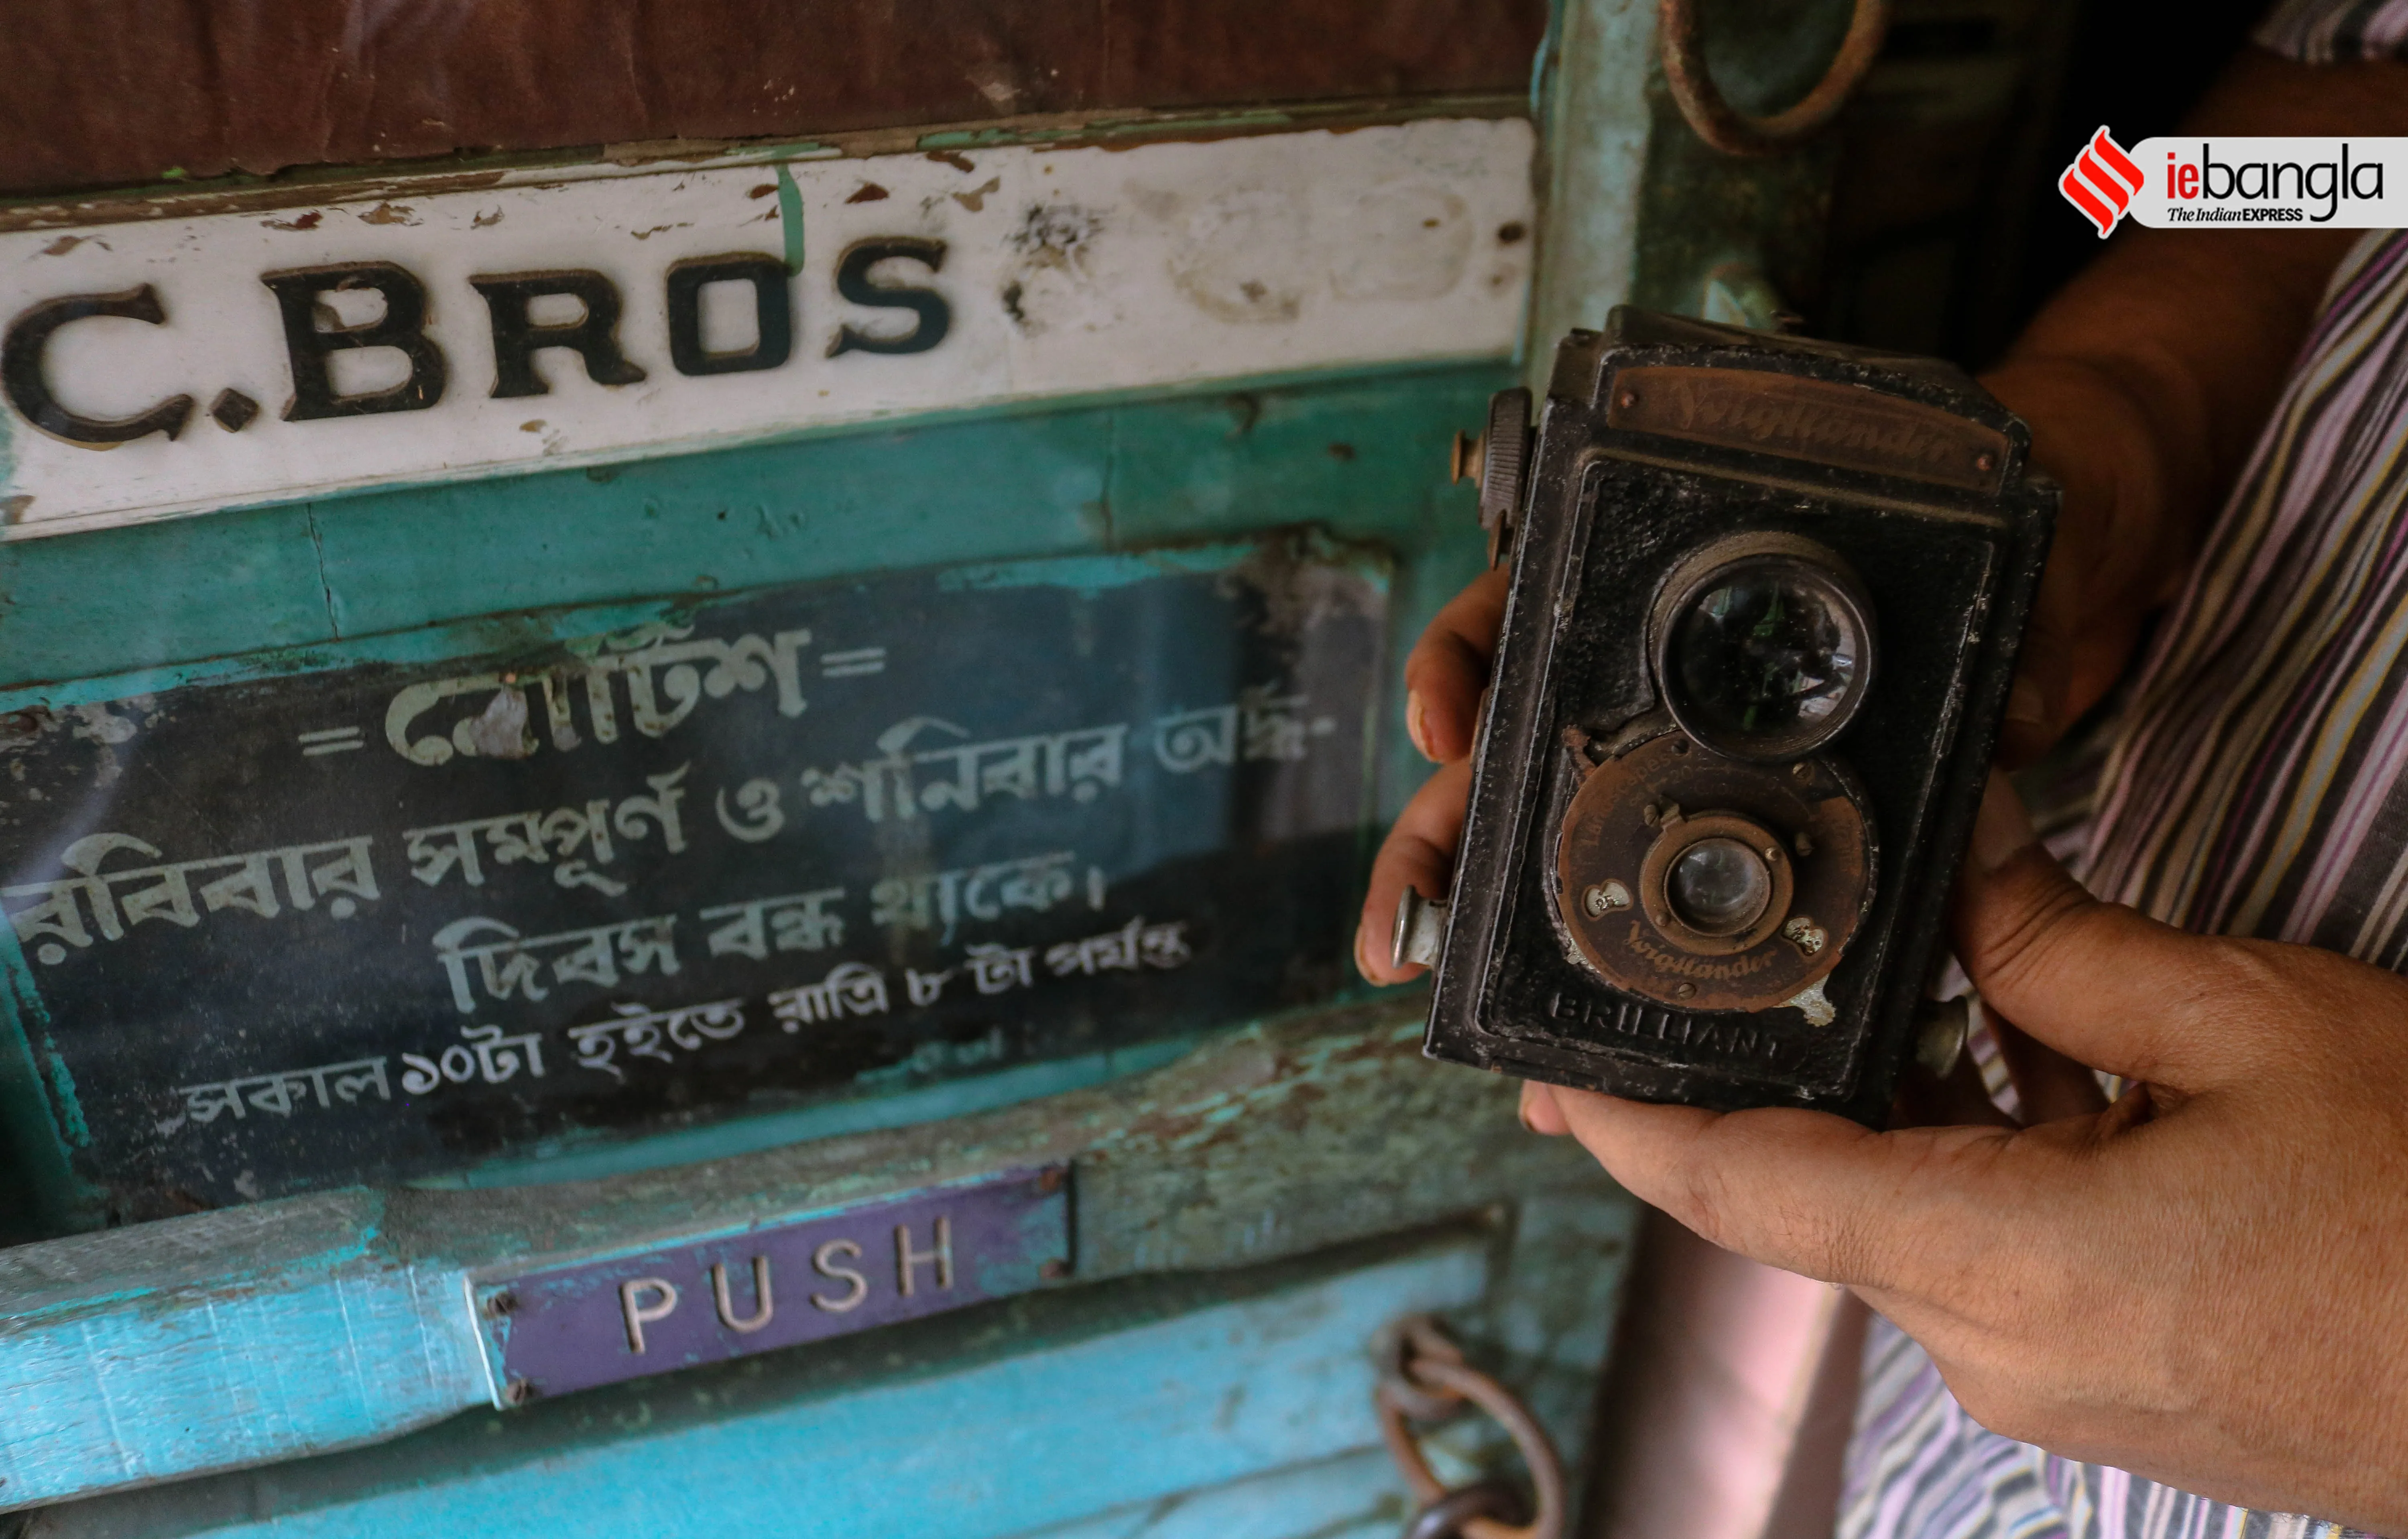 C. BROS
= নোটিশ =
রবিবার সম্পূর্ণ ও শনিবার অর্দ্ধ-
দিবস বন্ধ থাকে।
সকাল ১০টা হইতে রাত্রি ৮ টা পর্যন্ত
PUSH
Voigtländer
25
Voigtländer
BRILLIANT
iebangla
The Indian EXPRESS